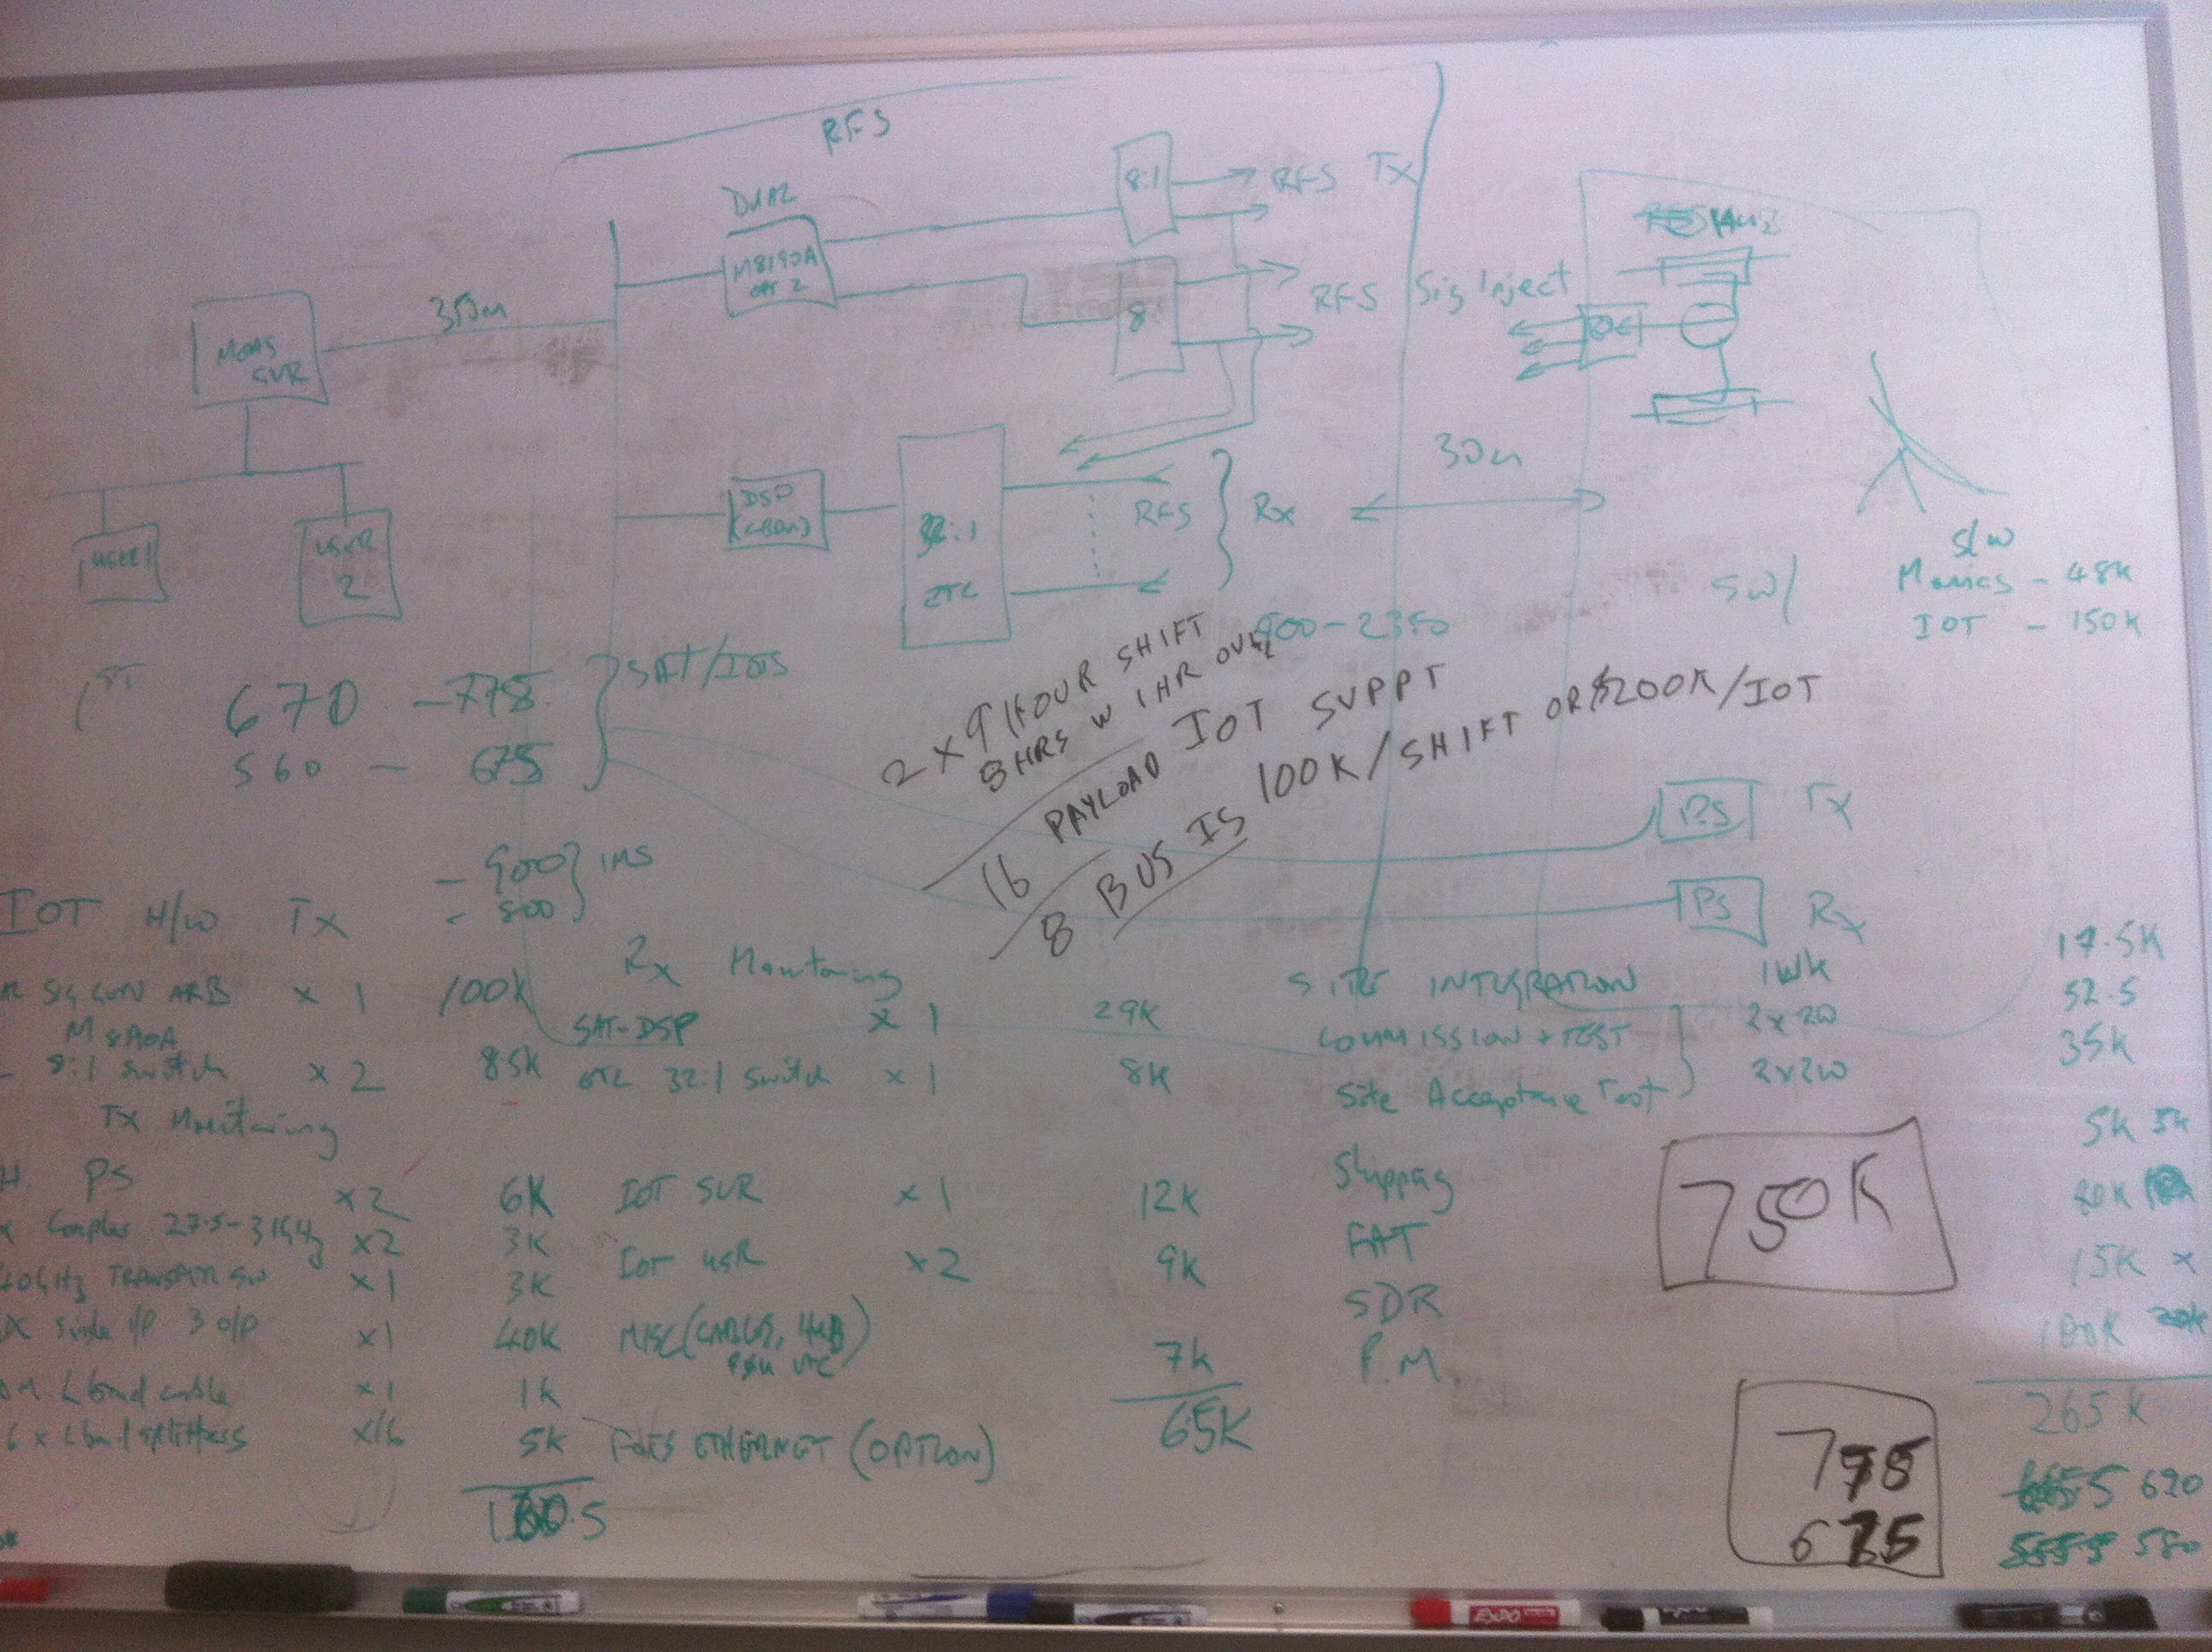 RFS
DUAL
M8190A
OPT 2
8:1
RFS Tx
8:
RFS Sig Inject
350m
MONS
SVR
USER 1
USER
2
DSP
32:1
ETL
RFS
Rx
30m
900-2350
SW/
S/W
Monics - 48K
IOT - 150K
670 - 775
560 - 675
SAT/IOS
2 x 9 HOUR SHIFT
8 HRS W 1 HR OVER
16 PAYLOAD IOT SUPPT
8 BUS IS 100K/SHIFT OR $200K/IOT
PS Tx
PS Rx
- 900
- 800
IMS
IOT H/W Tx
SIG GEN ARB x 1 100K
M8190A
8:1 Switch x 2 8.5K
Tx Monitoring
PS x2 6K
Coupler 27.5-31GHz x2 3K
40GHz TRANSFER SW x1 3K
Single I/P 3 O/P x1 40K
L band cable x1 1K
6 x L band splitters x16 5K
Rx Monitoring
SAT-DSP x 1 29K
ETL 32:1 Switch x 1 8K
IOT SVR x 1 12K
IOT USR x 2 9K
MISC (CABLES, HUB
7K
65K
ETHERNET (OPTION)
SITE INTEGRATION 1WK 17.5K
COMMISSION + TEST 2x2W 52.5
Site Acceptance Test 2x2W 35K
Shipping 5K
FAT
SDR 15K x
P.M 100K
750K
265K
775
675
690
580